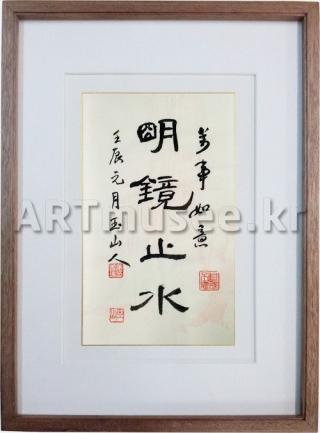 萬事如意
明鏡止水
壬辰元月玉山人
ARTmusee.kr